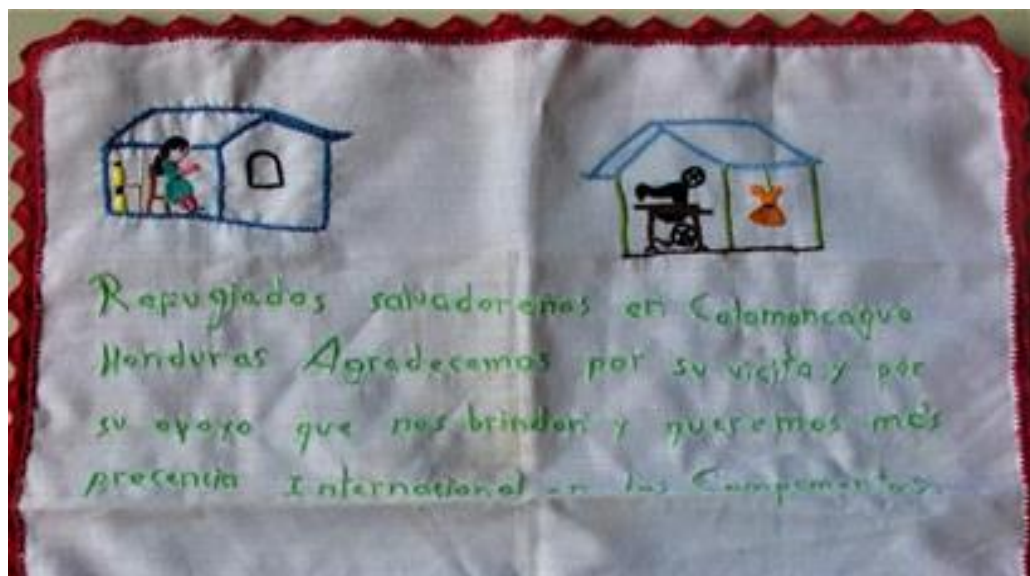 Repugiados salvadorenos en Colomoncagua
Honduras Agradecemos por su vicita y por
su apoyo que nos brindan y queremos más
precencia Internacional en los Campamentos.